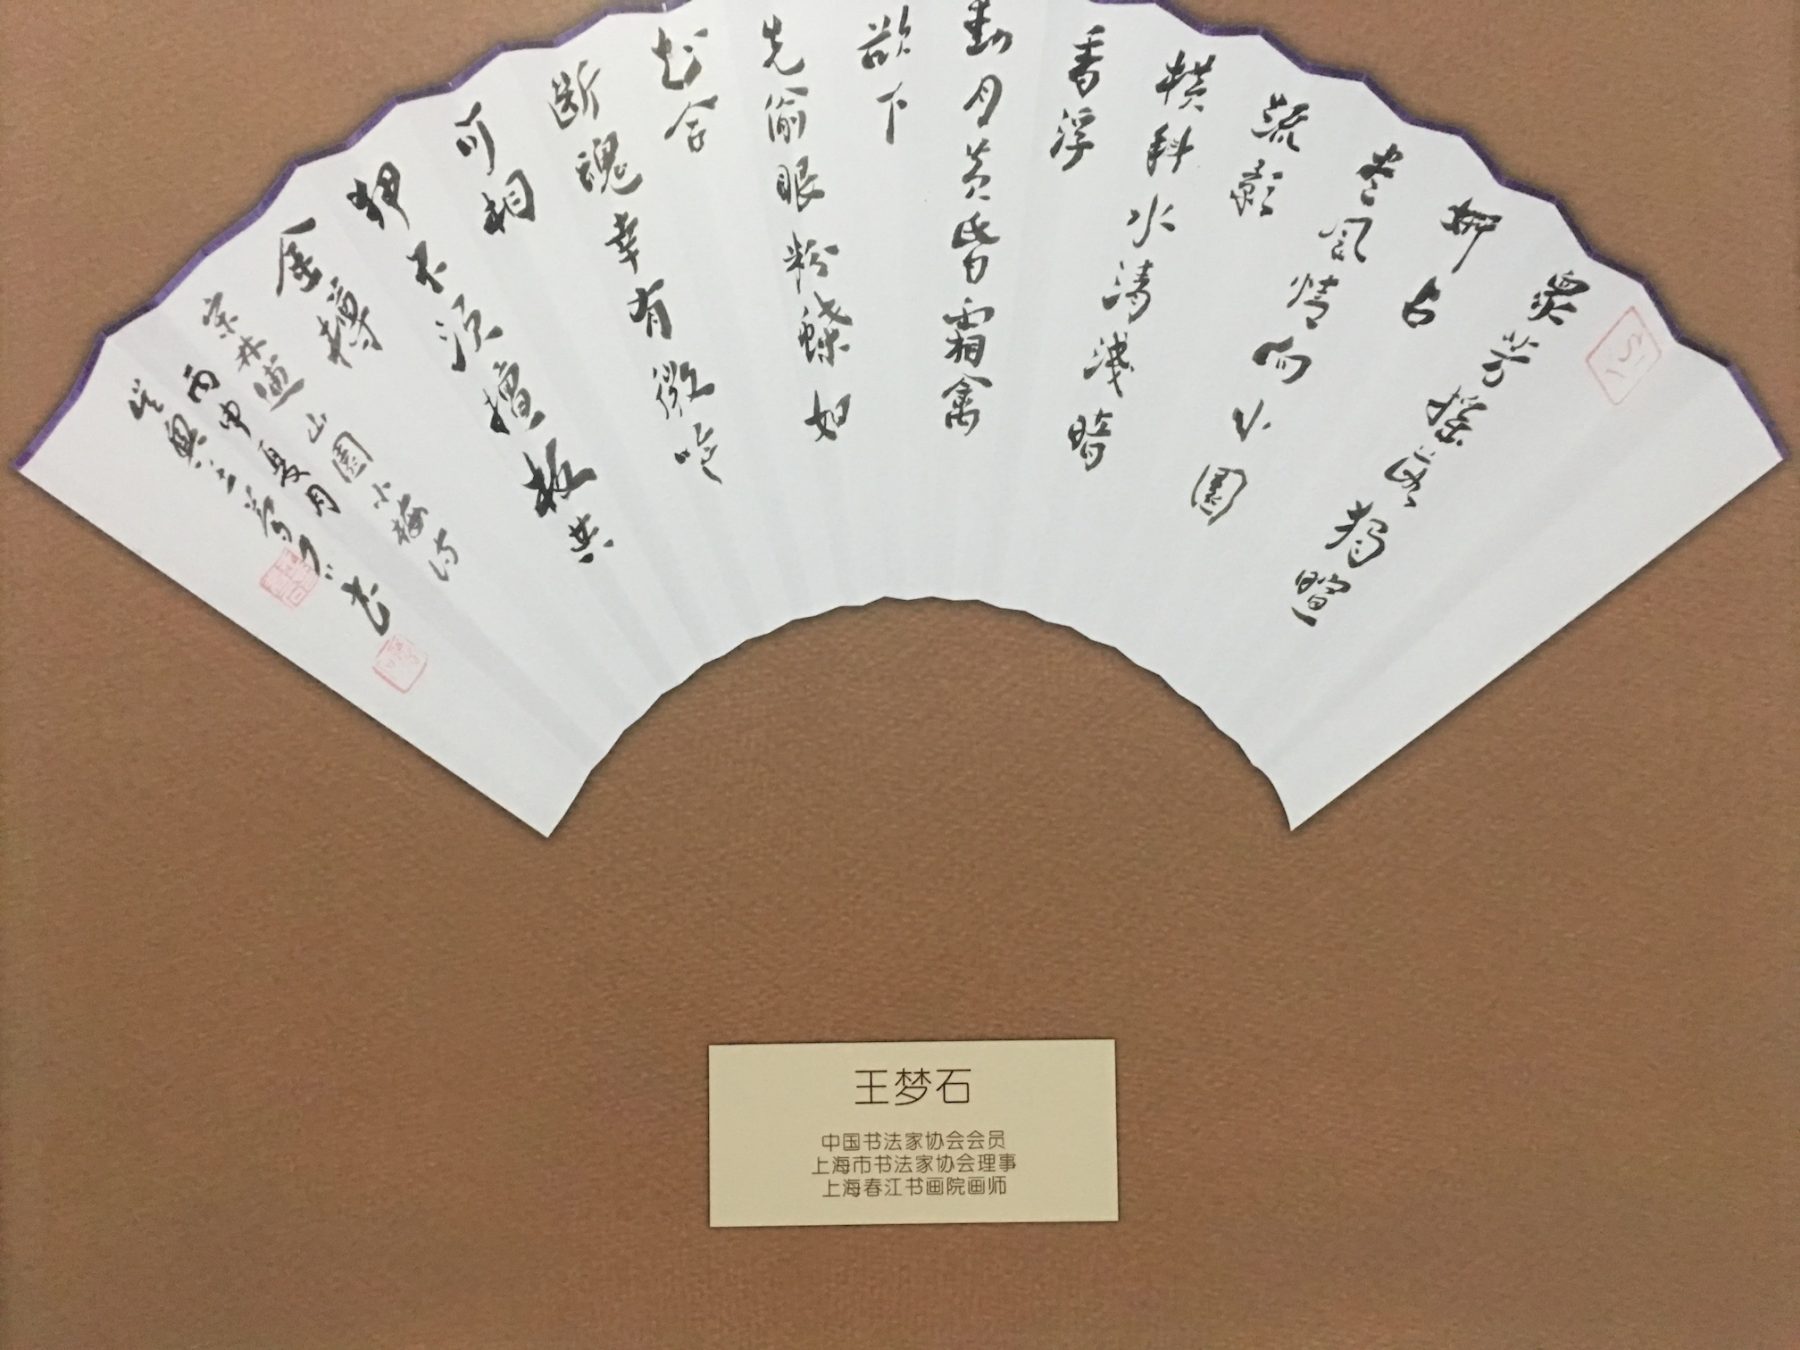 衆芳摇落獨暄
妍占
尽風情向小園
疏影
横斜水清淺暗
香浮
動月黄昏霜禽
欲下
先偷眼粉蝶如
知合
断魂幸有微吟
可相
狎不須檀板共
金樽
宋林逋山園小梅诗
丙申夏月
吴興王夢石书
王梦石
中国书法家协会会员
上海市书法家协会理事
上海春江书画院画师